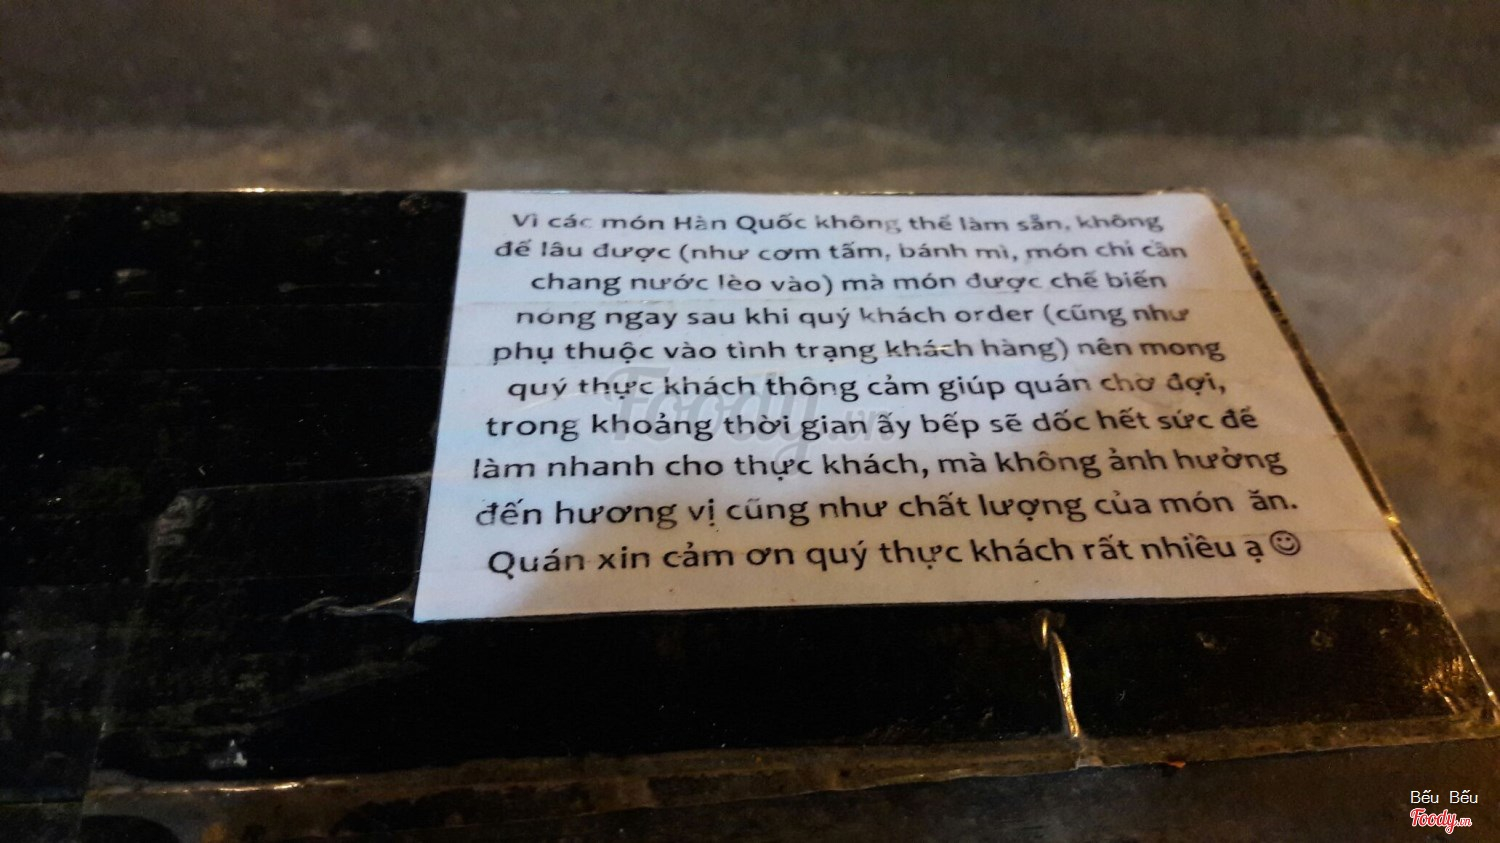 Vì các món Hàn Quốc không thể làm sẵn, không
để lâu được (như cơm tấm, bánh mì, món chỉ cần
chang nước lèo vào) mà món được chế biến
nóng ngay sau khi quý khách order (cũng như
phụ thuộc vào tình trạng khách hàng) nên mong
quý thực khách thông cảm giúp quán chờ đợi,
trong khoảng thời gian ấy bếp sẽ dốc hết sức để
làm nhanh cho thực khách, mà không ảnh hưởng
đến hương vị cũng như chất lượng của món ăn.
Quán xin cảm ơn quý thực khách rất nhiều ạ☺
Foody.vn
Bếu Bếu
Foody.vn